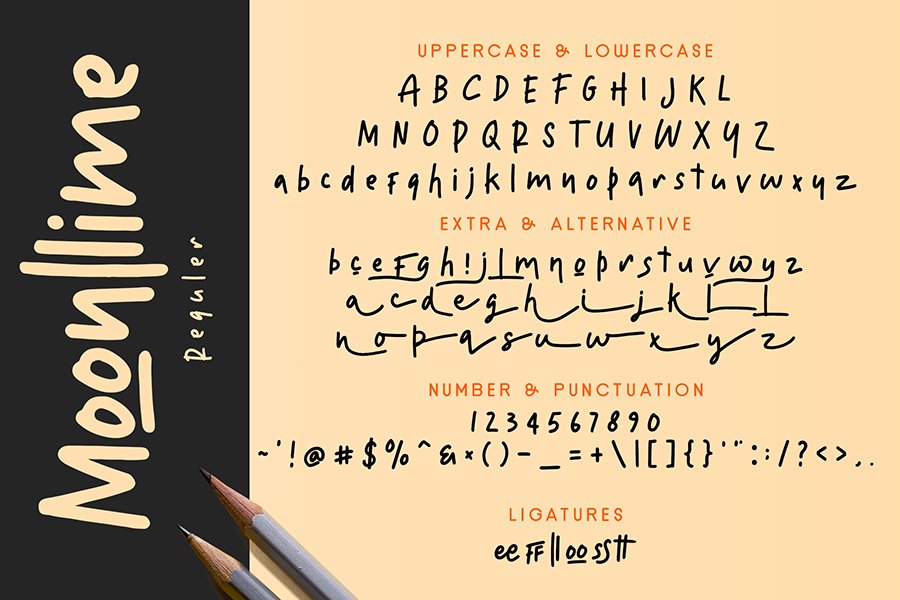 Moonllime
Reguler
UPPERCASE & LOWERCASE
A B C D E F G H I J K L
M N O P Q R S T U V W X Y Z
a b c d e f g h i j k l m n o p q r s t u v w x y z
EXTRA & ALTERNATIVE
b c e f g h i j l m n o p r s t u v w y z
a c d e g h i j k l l
n o p q s u w x y z
NUMBER & PUNCTUATION
1 2 3 4 5 6 7 8 9 0
~ ' ! @ # $ % ^ & * ( ) - _ = + \ | [ ] { } ' " : ; / ? < > , .
LIGATURES
ee ff ll oo ss tt